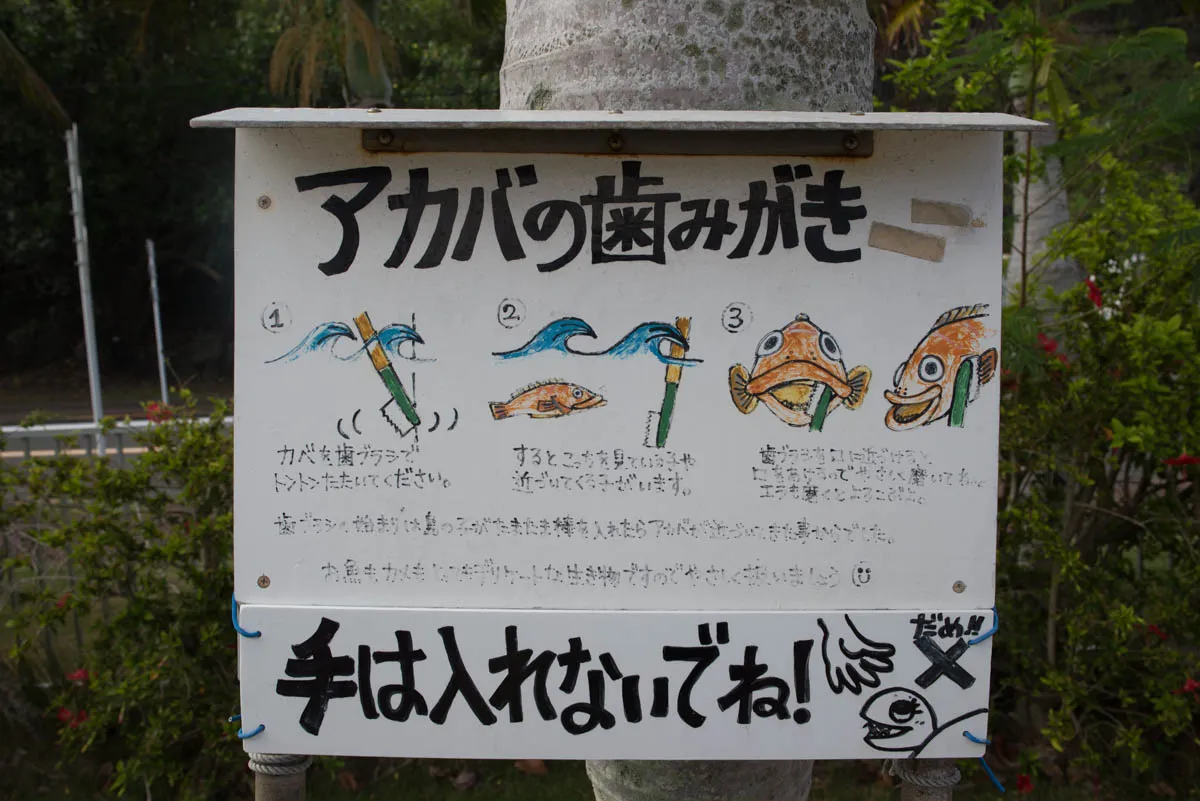 アカバの歯みがき
1
2
3
カベを歯ブラシで
トントンたたいてください。
するとこっちを見ている子や
近づいてくる子がいます。
歯ブラシを口に近づけると
口をあけるのでやさしく磨いてね。
エラも磨くとよろこぶよ。
歯ブラシの始まりは島の子がたまたま棒を入れたらアカバが近づいてきた事からでした。
お魚もカメもとてもデリケートな生き物ですのでやさしく扱いましょう
手は入れないでね!
だめ!!